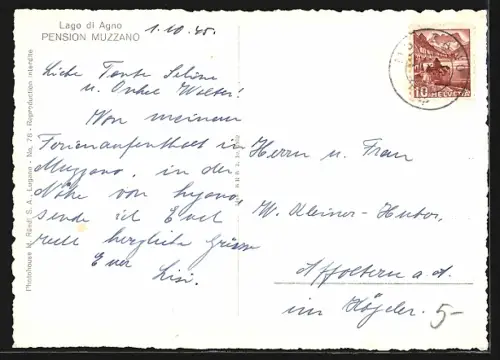 Lago di Agno
PENSION MUZZANO
1. 10. 45.
Liebe Tante Seline
u. Onkel Walter!
Von meinem
Ferienaufenthalt in
Muzzano, in der
Nähe von Lugano,
sende ich Euch
recht herzliche Grüsse
Euer Lisi.
Photohouse
S. A. - Lugano - No. 78 - Reproduction interdite
10 HELVETIA
Herrn u. Frau
W. Kleiner-Huber,
Affoltern a. A.
im
5-